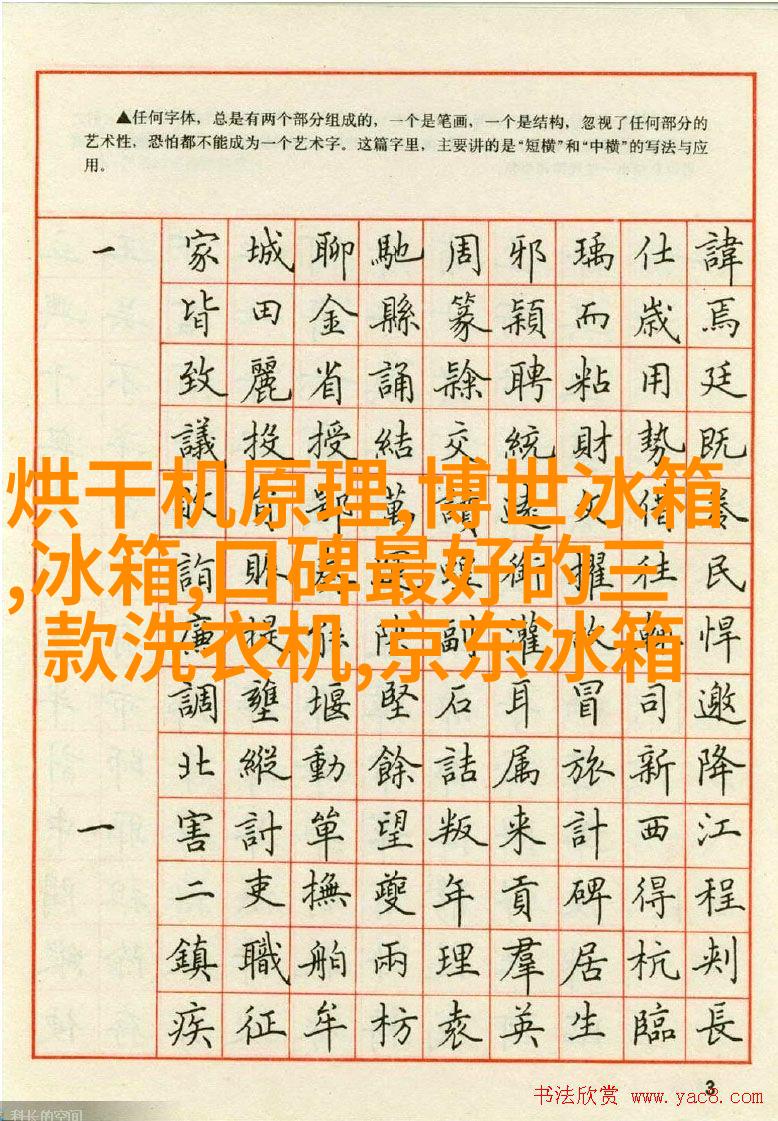 ▲任何字体，总是有两个部分组成的，一个是笔画，一个是结构，忽视了任何部分的
艺术性，恐怕都不能成为一个艺术字。这篇字里，主要讲的是“短横”和“中横”的写法与应
用。
一 家 城 聊 馳 周 邪 瑀 仕 諱
皆 田 金 縣 篆 穎 而 歲 焉
致 麗 省 誦 隸 聘 粘 用 廷
議 投 授 結 交 統 財 勢 既
烘干机原理,博世冰箱
,冰箱,口碑最好的三
款洗衣机,京东冰箱
民
悍
調 壅 堰 堅 石 耳 冒 司 邀
北 縱 動 餘 詰 属 旅 新 降
一 害 討 單 望 叛 来 計 西 江
二 吏 撫 夔 年 貢 碑 得 程
鎮 職 舶 兩 理 羣 居 杭 刺
疾 征 牟 枋 袁 英 生 臨 長
3
书法欣赏 www.yac8.com
科长的空间